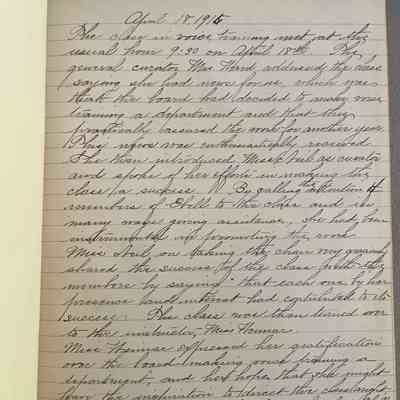 April 18, 1915
The class in voice training met at the
usual hour 9:30 on April 18th. The
general curator Mrs. Ward addressed the class
saying she had news for us, which was
that the board had decided to make voice
training a department and that this
practically assured the work for another year.
This news was enthusiastically received.
She then introduced Miss Neil as curator
and spoke of her efforts in making this
class a success. By calling the attention of
members of to the class and in
many ways giving assistance, she had been
instrumental in promoting the work.
Miss Neil on taking the chair very
shared the success of the class with the
members by saying, "that each one by her
presence and interest had contributed to its
success. The class was then turned over
to the instructor, Miss
Miss expressed her gratification
over the board making voice training a
department, and her hope that she might
have the inspiration to direct the